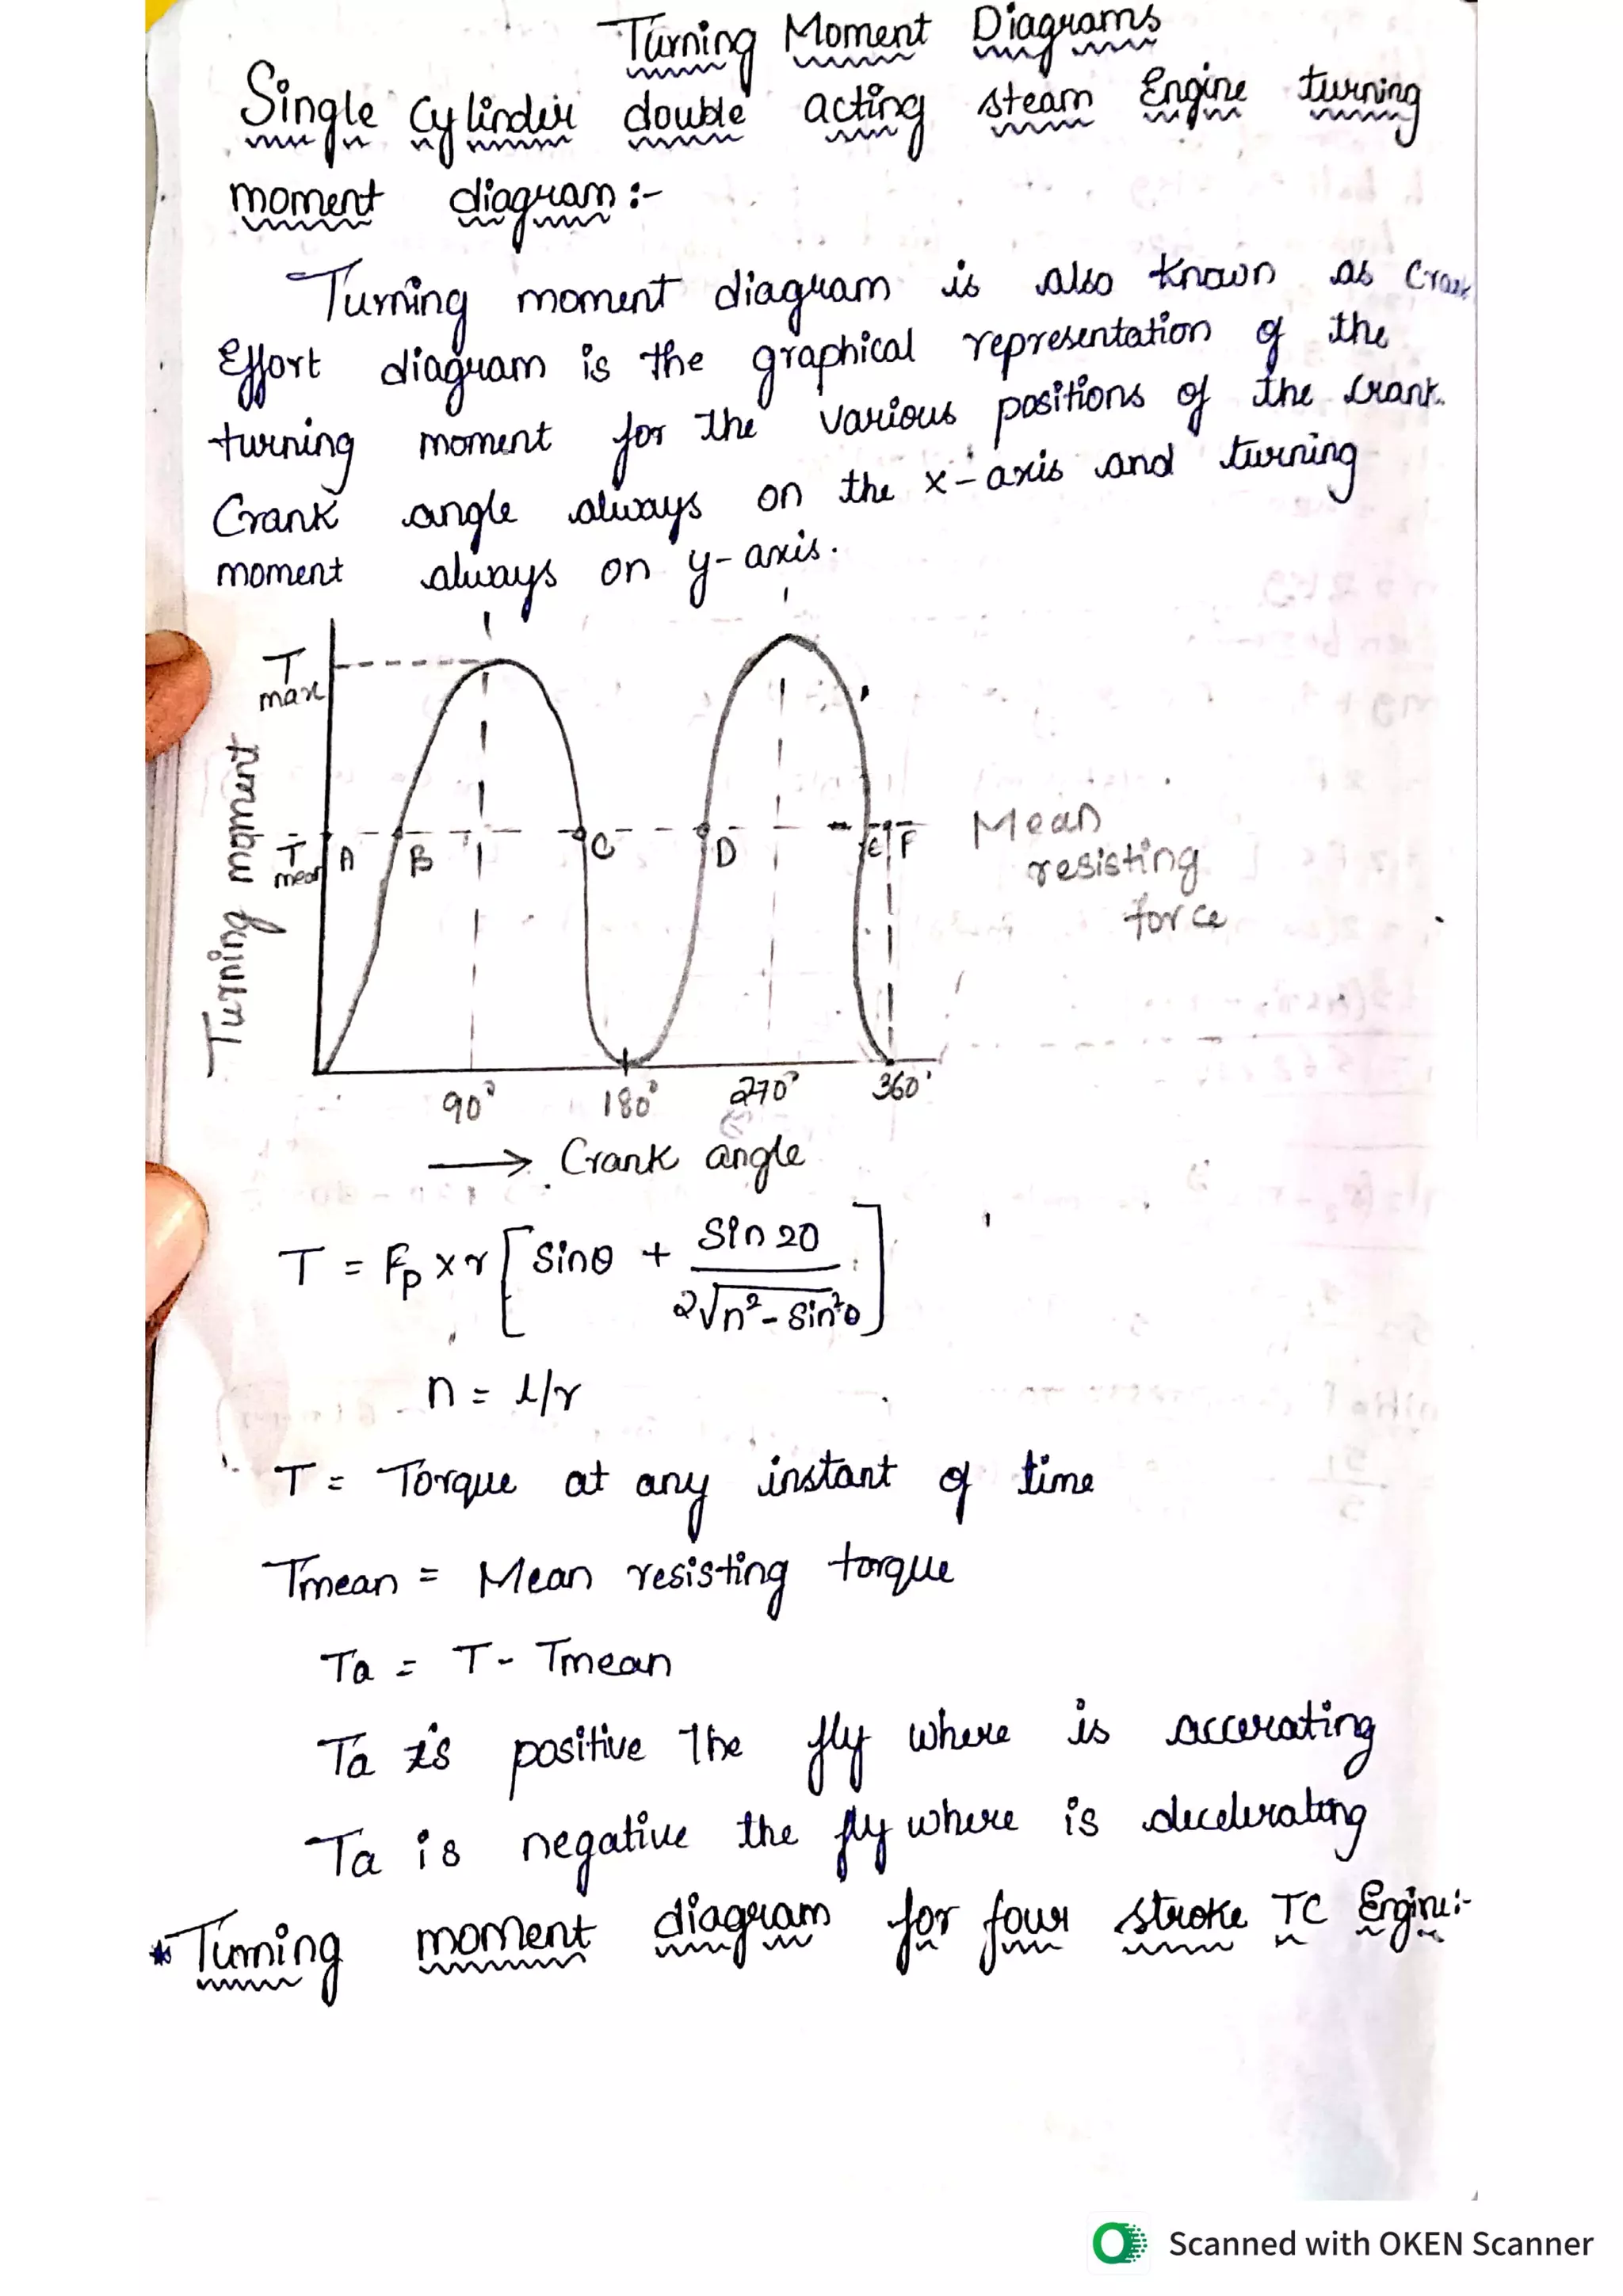 Turning Moment Diagrams
Single Cylinder double acting steam Engine turning
moment diagram :-
Turning moment diagram is also known as Crank
Effort diagram is the graphical representation of the
turning moment for the various positions of the crank.
Crank angle always on the x-axis and turning
moment always on y-axis.
T max
Turning moment
T mean
A B C D E F
Mean
resisting
force
90° 180° 270° 360°
→ Crank angle
T = Fp × r [ Sinθ + Sin 2θ / 2√n² - Sin²θ ]
n = l/r
T = Torque at any instant of time
Tmean = Mean resisting torque
Ta = T - Tmean
Ta is positive the fly where is accerating
Ta is negative the fly where is decelerating
* Turning moment diagram for four stroke IC Engine:-
Scanned with OKEN Scanner